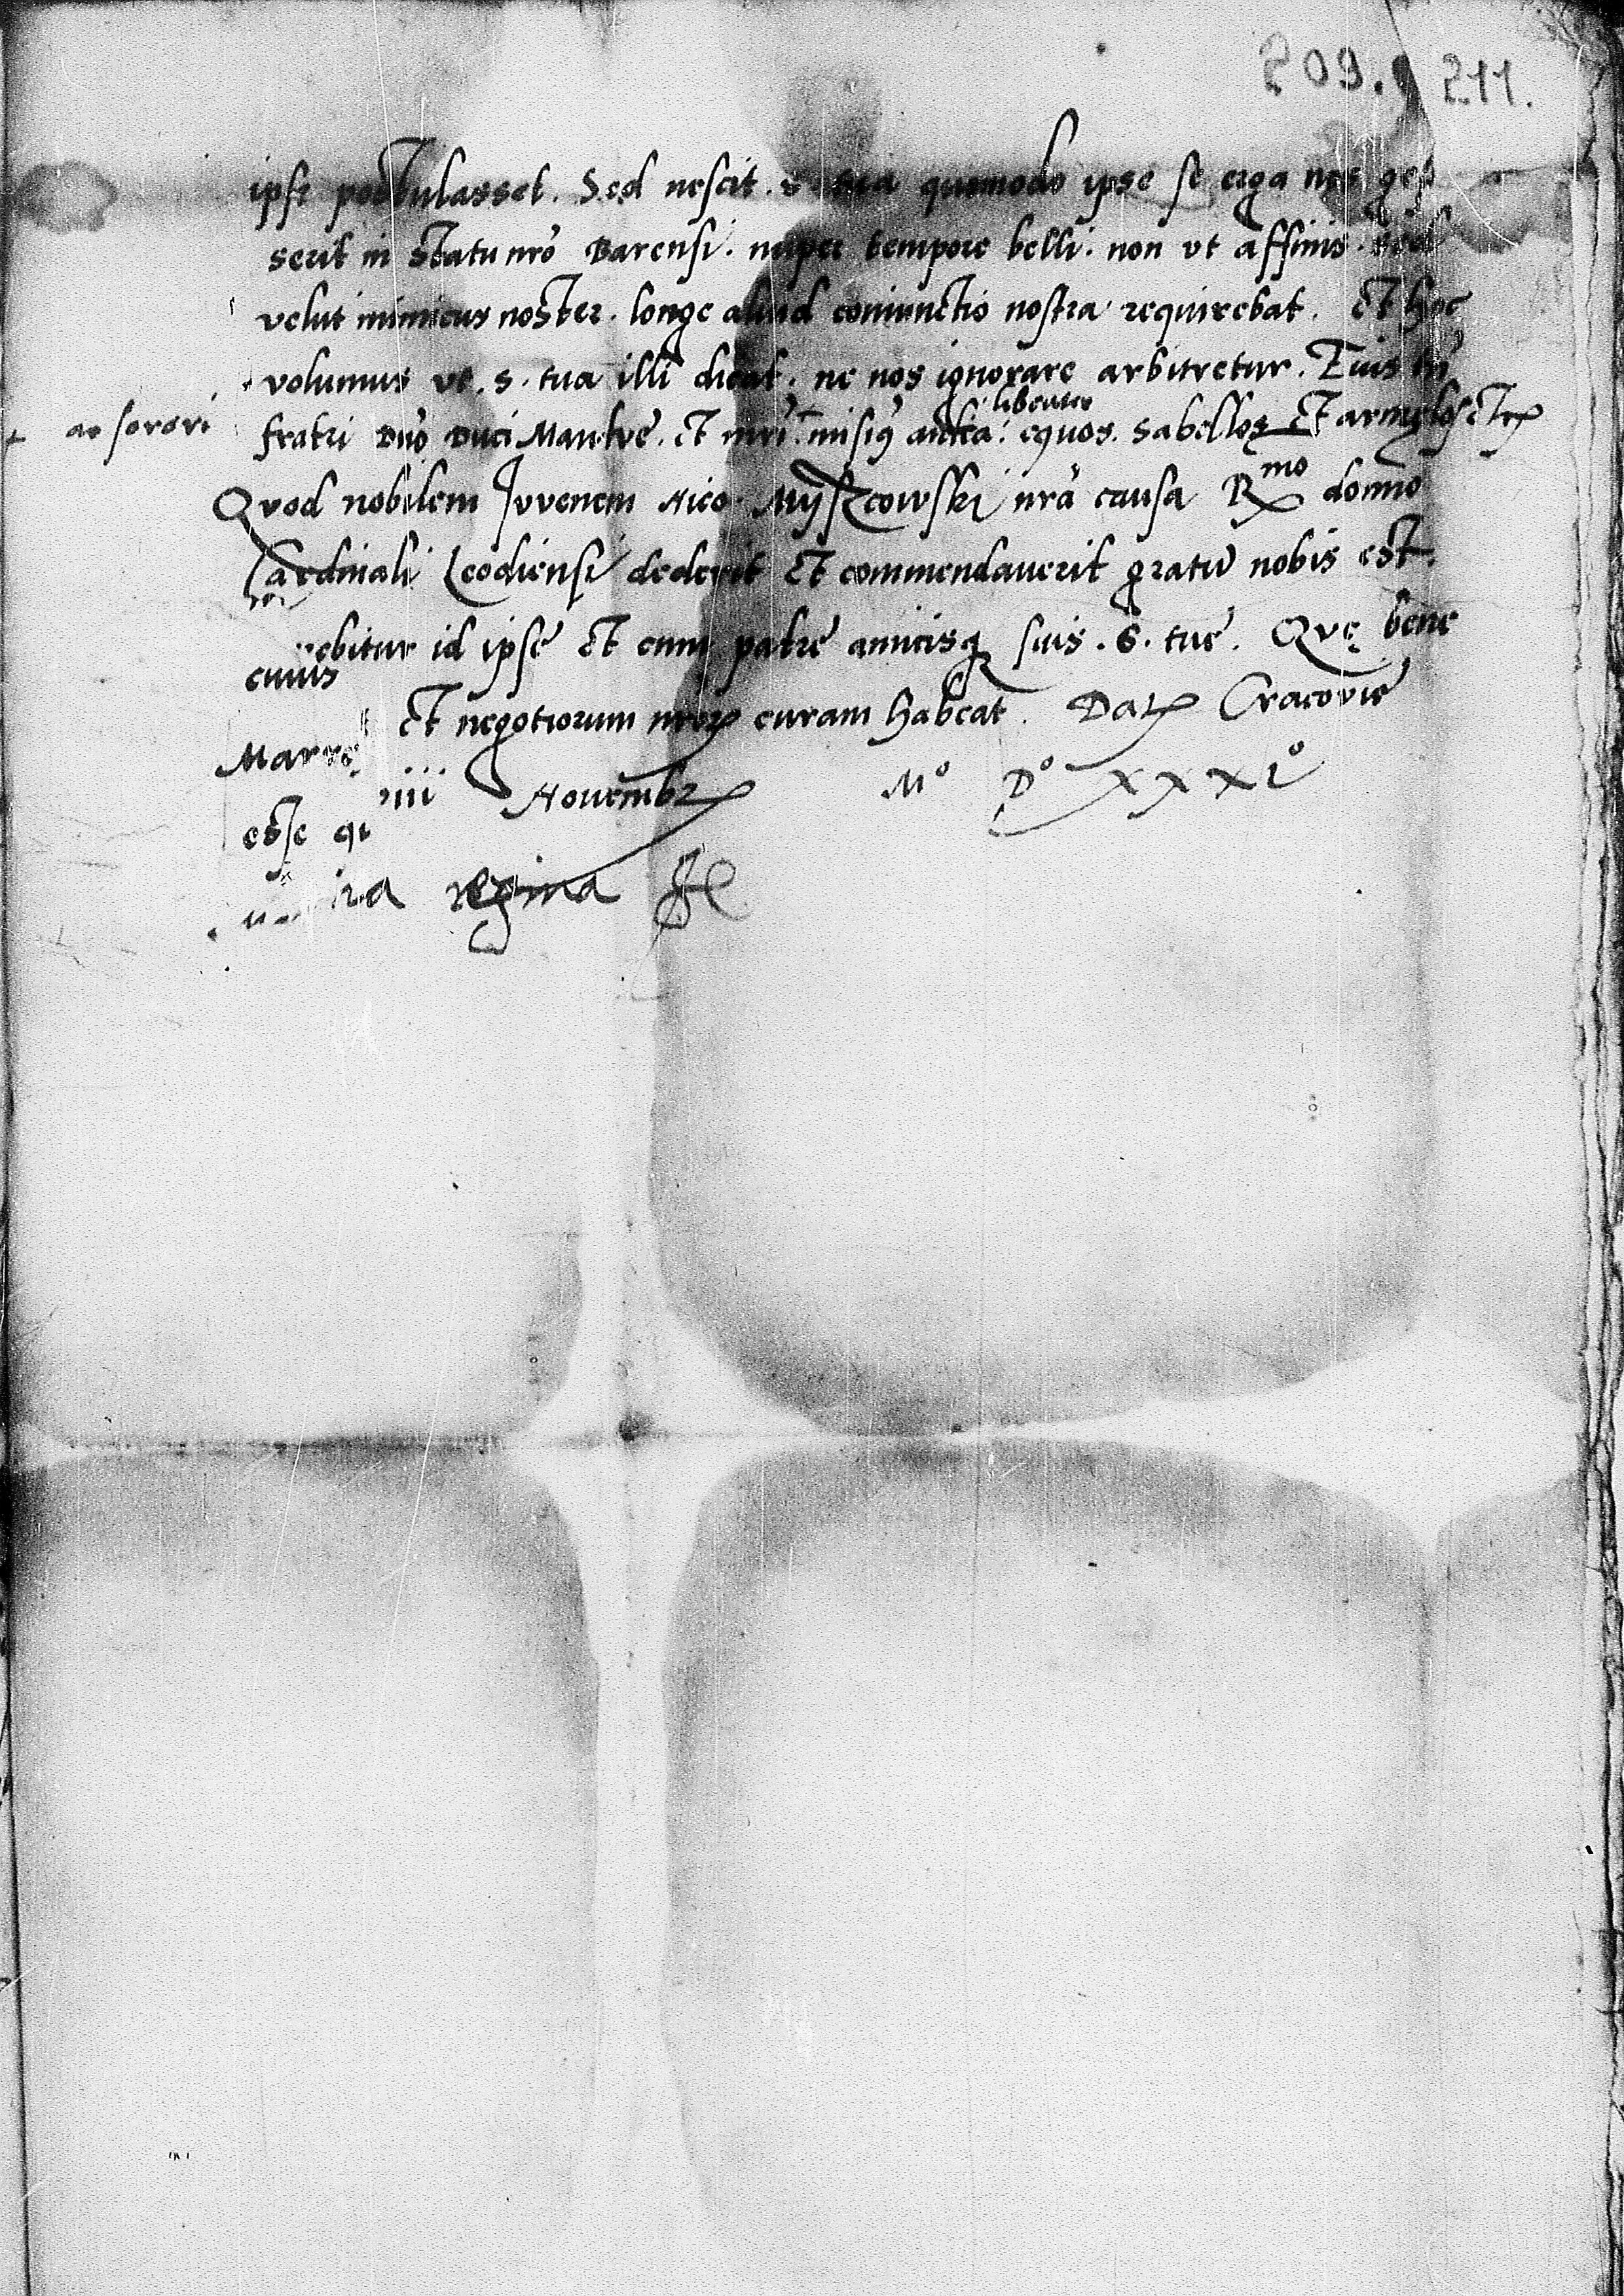 209. 211.
ipsi postulasset. Sed nescit. s. tua quomodo ipse se erga nos ges
serit in statu nrō Barensi. nuper tempore belli. non vt affinis. sed
velut inimicus noster. longe aliud coniunctio nostra requirebat. Et hoc
volumus vt. s. tua illi dicat. ne nos ignorare arbitretur. Eius
+ ac sorori
fratri Duci Mantuē. et antea. libenter equos. sabellos et
Quod nobilem Juvenem Nico. Mijszcowski nrā causa R^mo domno
Cardinali Leodiensi dederit et commendauerit gratū nobis est.
ebitur id ipse et cum patre amicisq suis. S. tuę. Quę bene
cuius
et negotiorum curam habeat. Dat Cracovię
Marre
iiii Novembr M° D° XXXI°
esse qi
regina